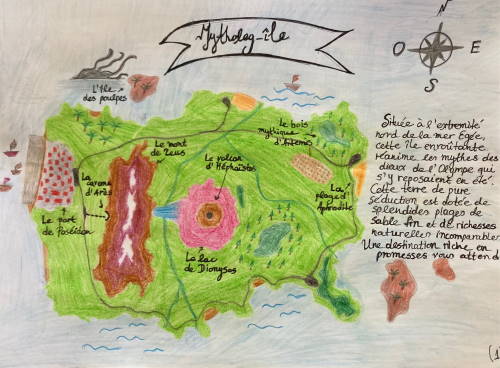 Mytholog-île
N
O
E
S
L'île
des poulpes
Le bois
mythique
d'Artémis
Le mont
de Zeus
Le volcan
d'Héphaïstos
La
caverne
d'Arès
La
plage d'
Aphrodite
Le port
de Poséidon
Le lac
de Dionysos
Située à l'extremité
nord de la mer Égée,
cette île envoûtante
réanime les mythes des
dieux de l'Olympe qui
s'y reposaient en été.
Cette terre de pure
séduction est dotée de
splendides plages de
sable fin et de richesses
naturelles incomparables
Une destination riche en
promesses vous attend
(1)